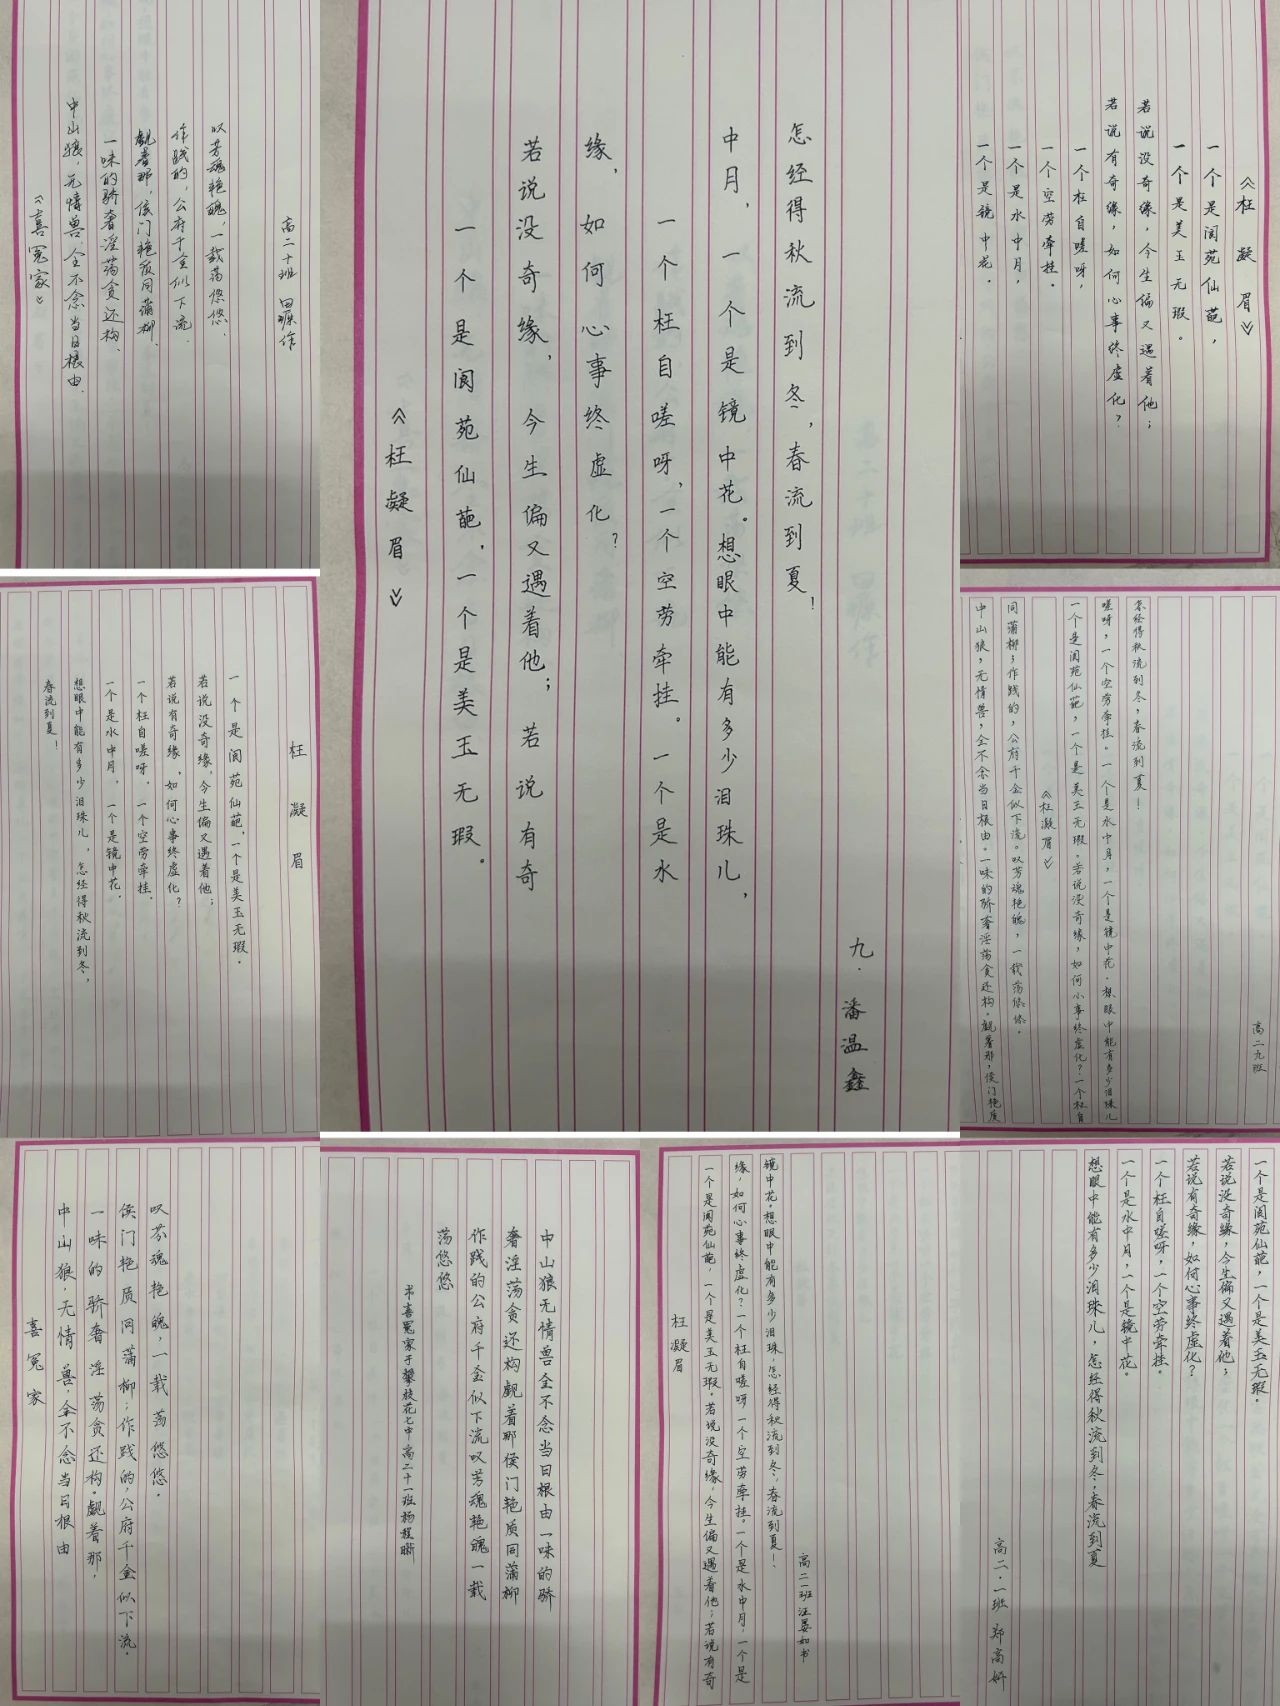 《喜冤家》
中山狼,无情兽,全不念当日根由.
一味的骄奢淫荡贪还构.
觑着那,侯门艳质同蒲柳.
作践的,公府千金似下流.
叹芳魂艳魄,一载荡悠悠.
高二十班 田作
《枉凝眉》
一个是阆苑仙葩,一个是美玉无瑕。
若说没奇缘,今生偏又遇着他;若说有奇
缘,如何心事终虚化?
一个枉自嗟呀,一个空劳牵挂。一个是水
中月,一个是镜中花。想眼中能有多少泪珠儿,
怎经得秋流到冬,春流到夏!
九.潘温鑫
《枉凝眉》
一个是阆苑仙葩,
一个是美玉无瑕。
若说没奇缘,今生偏又遇着他;
若说有奇缘,如何心事终虚化?
一个枉自嗟呀,
一个空劳牵挂.
一个是水中月,
一个是镜中花.
枉凝眉
一个是阆苑仙葩,一个是美玉无瑕.
若说没奇缘,今生偏又遇着他;
若说有奇缘,如何心事终虚化?
一个枉自嗟呀,一个空劳牵挂.
一个是水中月,一个是镜中花.
想眼中能有多少泪珠儿,怎经得秋流到冬,
春流到夏!
中山狼,无情兽,全不念当日根由。一味的骄奢淫荡贪还构。觑着那,侯门艳质
同蒲柳;作践的,公府千金似下流。叹芳魂艳魄,一载荡悠悠。
《枉凝眉》
一个是阆苑仙葩,一个是美玉无瑕。若说没奇缘,如何心事终虚化?一个枉自
嗟呀,一个空劳牵挂。一个是水中月,一个是镜中花.想眼中能有多少泪珠儿
怎经得秋流到冬,春流到夏!
高二九班
喜冤家
中山狼,无情兽,全不念当日根由
一味的骄奢淫荡贪还构。觑着那,
侯门艳质同蒲柳;作践的,公府千金似下流.
叹芳魂艳魄,一载荡悠悠.
中山狼无情兽全不念当日根由一味的骄
奢淫荡贪还构觑着那侯门艳质同蒲柳
作践的公府千金似下流叹芳魂艳魄一载
荡悠悠
书喜冤家于攀枝花七中高二十一班杨程晰
枉凝眉
一个是阆苑仙葩,一个是美玉无瑕.若说没奇缘,今生偏又遇着他;若说有奇
缘,如何心事终虚化?一个枉自嗟呀一个空劳牵挂.一个是水中月,一个是
镜中花.想眼中能有多少泪珠,怎经得秋流到冬,春流到夏!
高二一班汪晏如书
一个是阆苑仙葩,一个是美玉无瑕.
若说没奇缘,今生偏又遇着他;
若说有奇缘,如何心事终虚化?
一个枉自嗟呀,一个空劳牵挂.
一个是水中月,一个是镜中花.
想眼中能有多少泪珠儿,怎经得秋流到冬,春流到夏
高二.一班 郑高妍